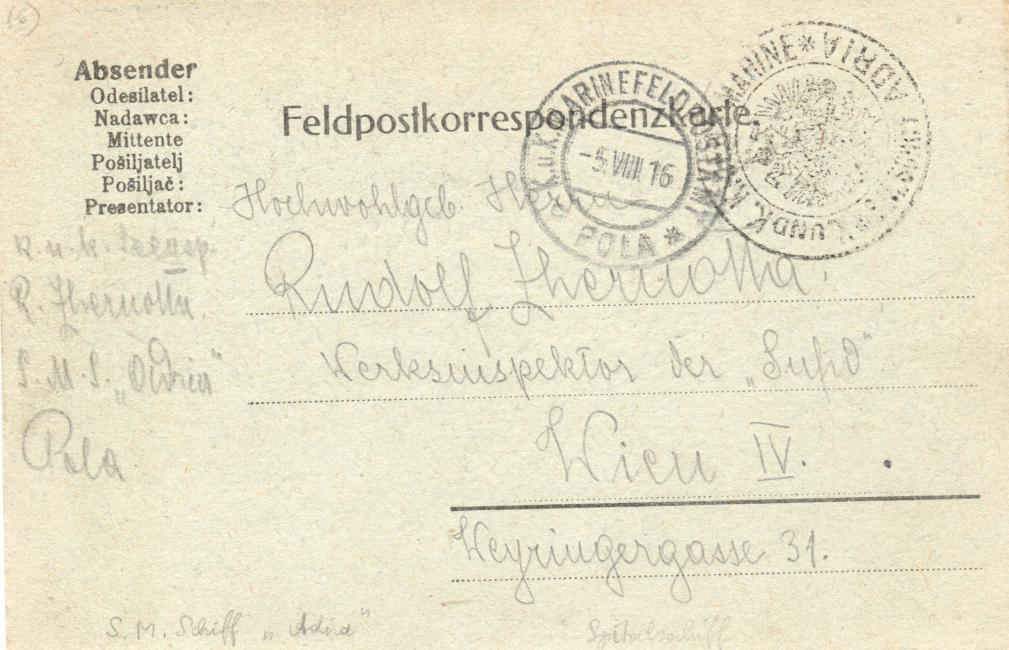 (6)
Absender
Odesilatel:
Nadawca:
Mittente
Pošiljatelj
Pošiljač:
Presentator:
Feldpostkorrespondenzkarte.
K.u.K. MARINEFELDPOSTAMT
-5.VIII.16
POLA *
K. UND K. KRIEGSMARINE * ADRIA
Hochwohlgeb. Herrn
Rudolf Zhernotta
Werksinspektor der „Supd“
Wien IV.
Weyringergasse 31.
k. u. k.
R. Zhernotta.
S. M. S. „Adria“
Pola
S. M. Schiff „Adria“
Spitalschiff